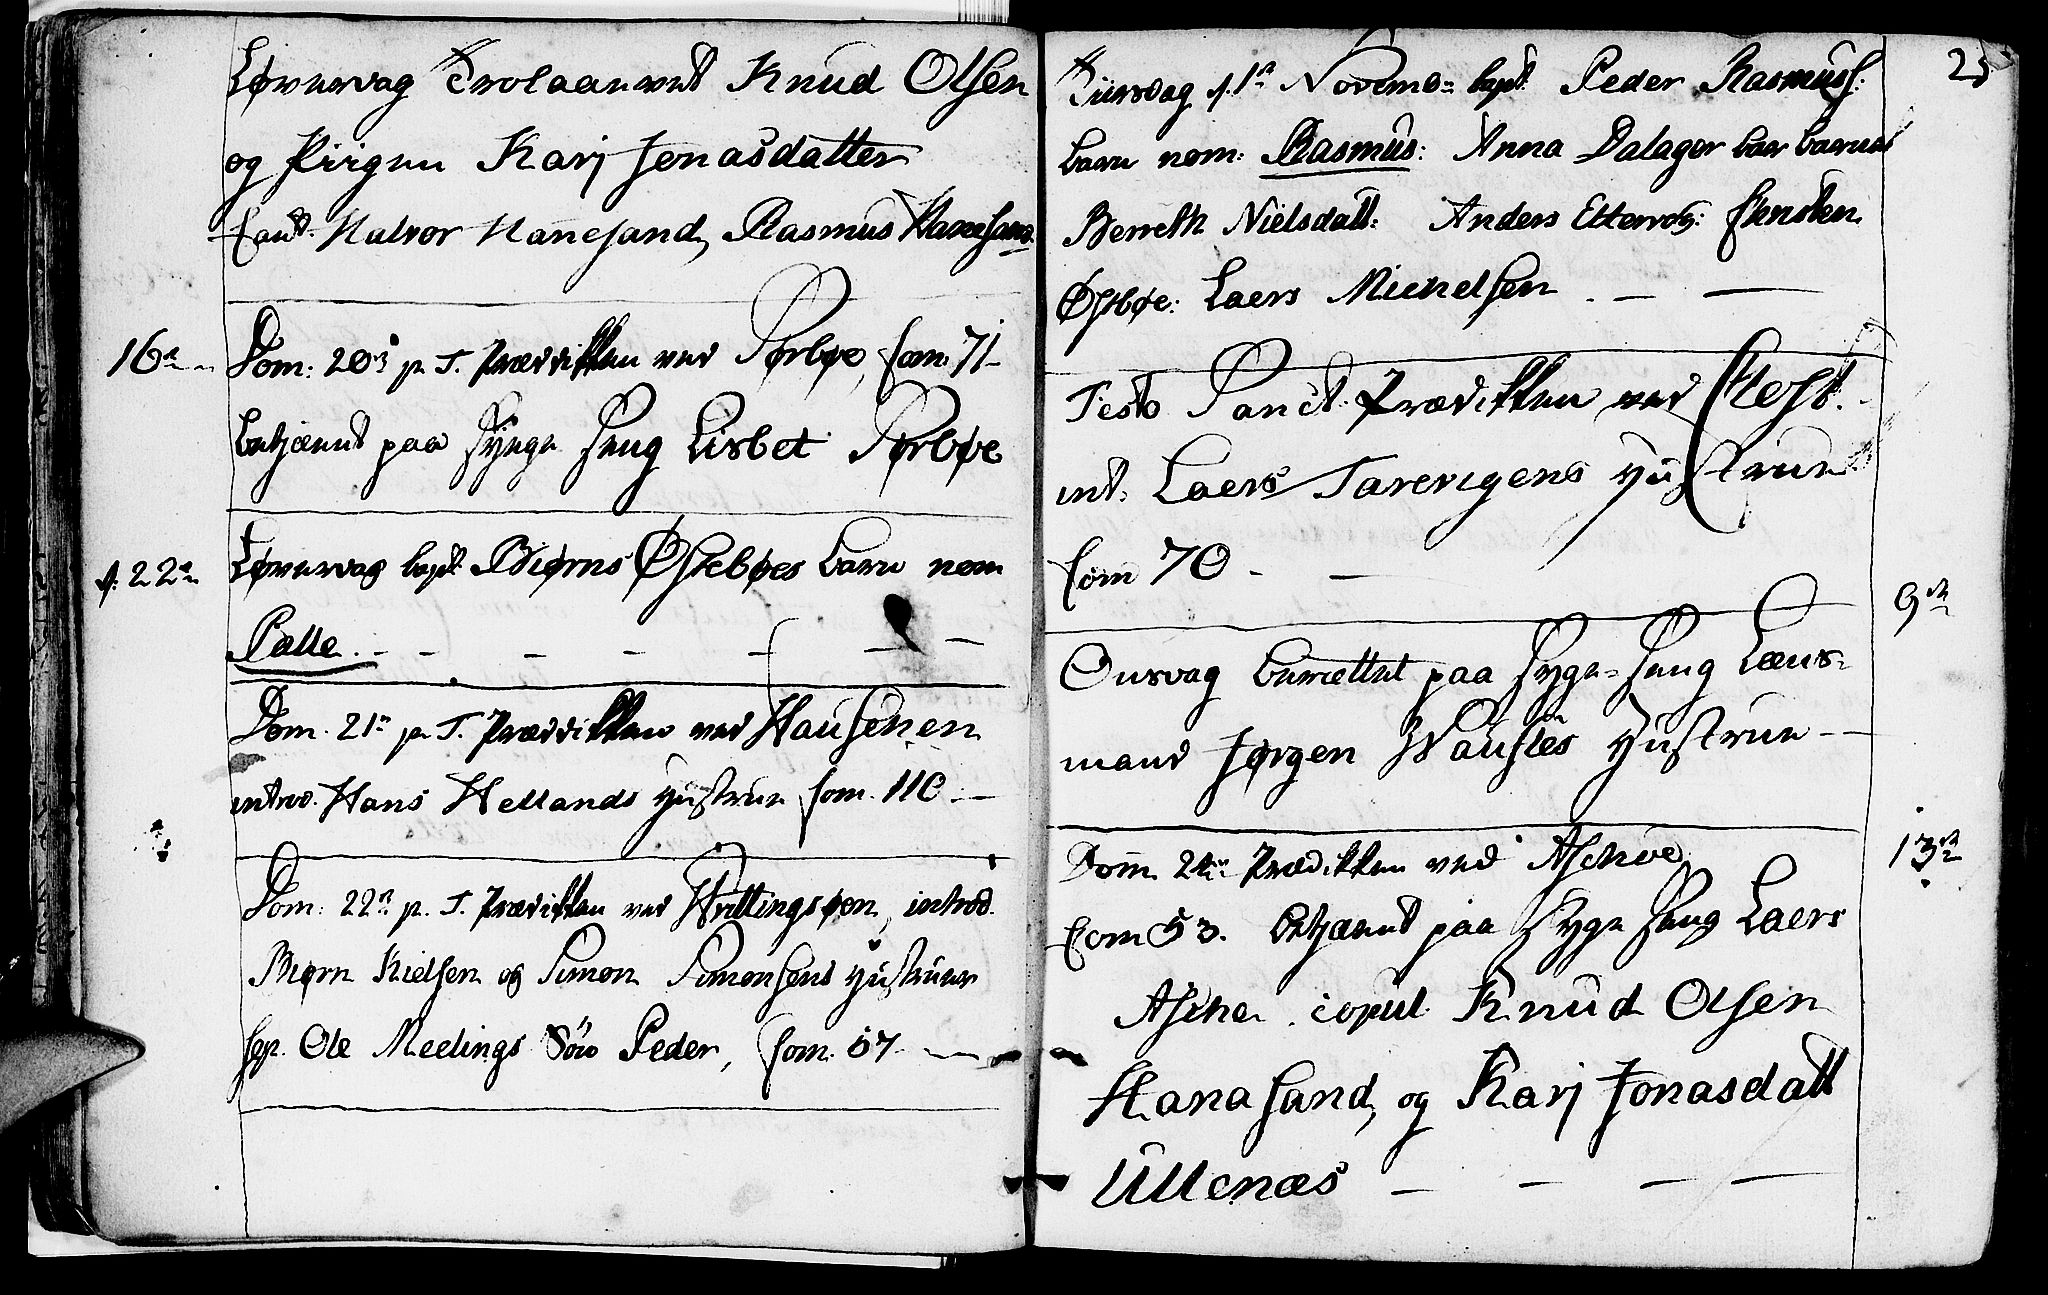 Løverdag Trolaavet Knud Olsen
og Pirgen Karj Jonasdatter
Caut. Halvor Hanesand, Rasmus Hanesand
16de Dom: 20de p. T. Prædikken ved Sørbøe, Com. 71
betjænt paa Syge Seng Lisbet Sørbøe
d. 22de Løverdag bapt Biørns Østebøes barn nom
Palle.
Dom. 21de p. T. Prædikken ved Hausenen
introd. Hans Hellands Hustrue Com. 110
Dom: 22de p. T. Prædikken ved Hvittingsøen, introd.
Biørn Nielsen og Simon Simonsens Hustruer
sep. Ole Meelings Sön Peder, Com. 57
25
Tiirsdag d. 1ste Novemb: bapt. Peder Rasmuss:
barn nom: Rasmus: Anna Dalager bar barnet
Bereth Nielsdatt: Anders Ettervog: Stensten
Østbøe: Laers Michelsen
Festo Sanct. Prædikken ved Klost.
int. Laers Tarevigens Hustrue
Com 70
9de
Onsdag berættet paa Syge-Seng Læns-
mand Jørgen Waustes Hustrue
13de
Dom. 24de Prædikken ved Aschøe
Com 53. betjænt paa Syge Seng Laers
Aschøe. copul. Knud Olsen
Hanasand, og Karj Jonasdatt
Ullenæs